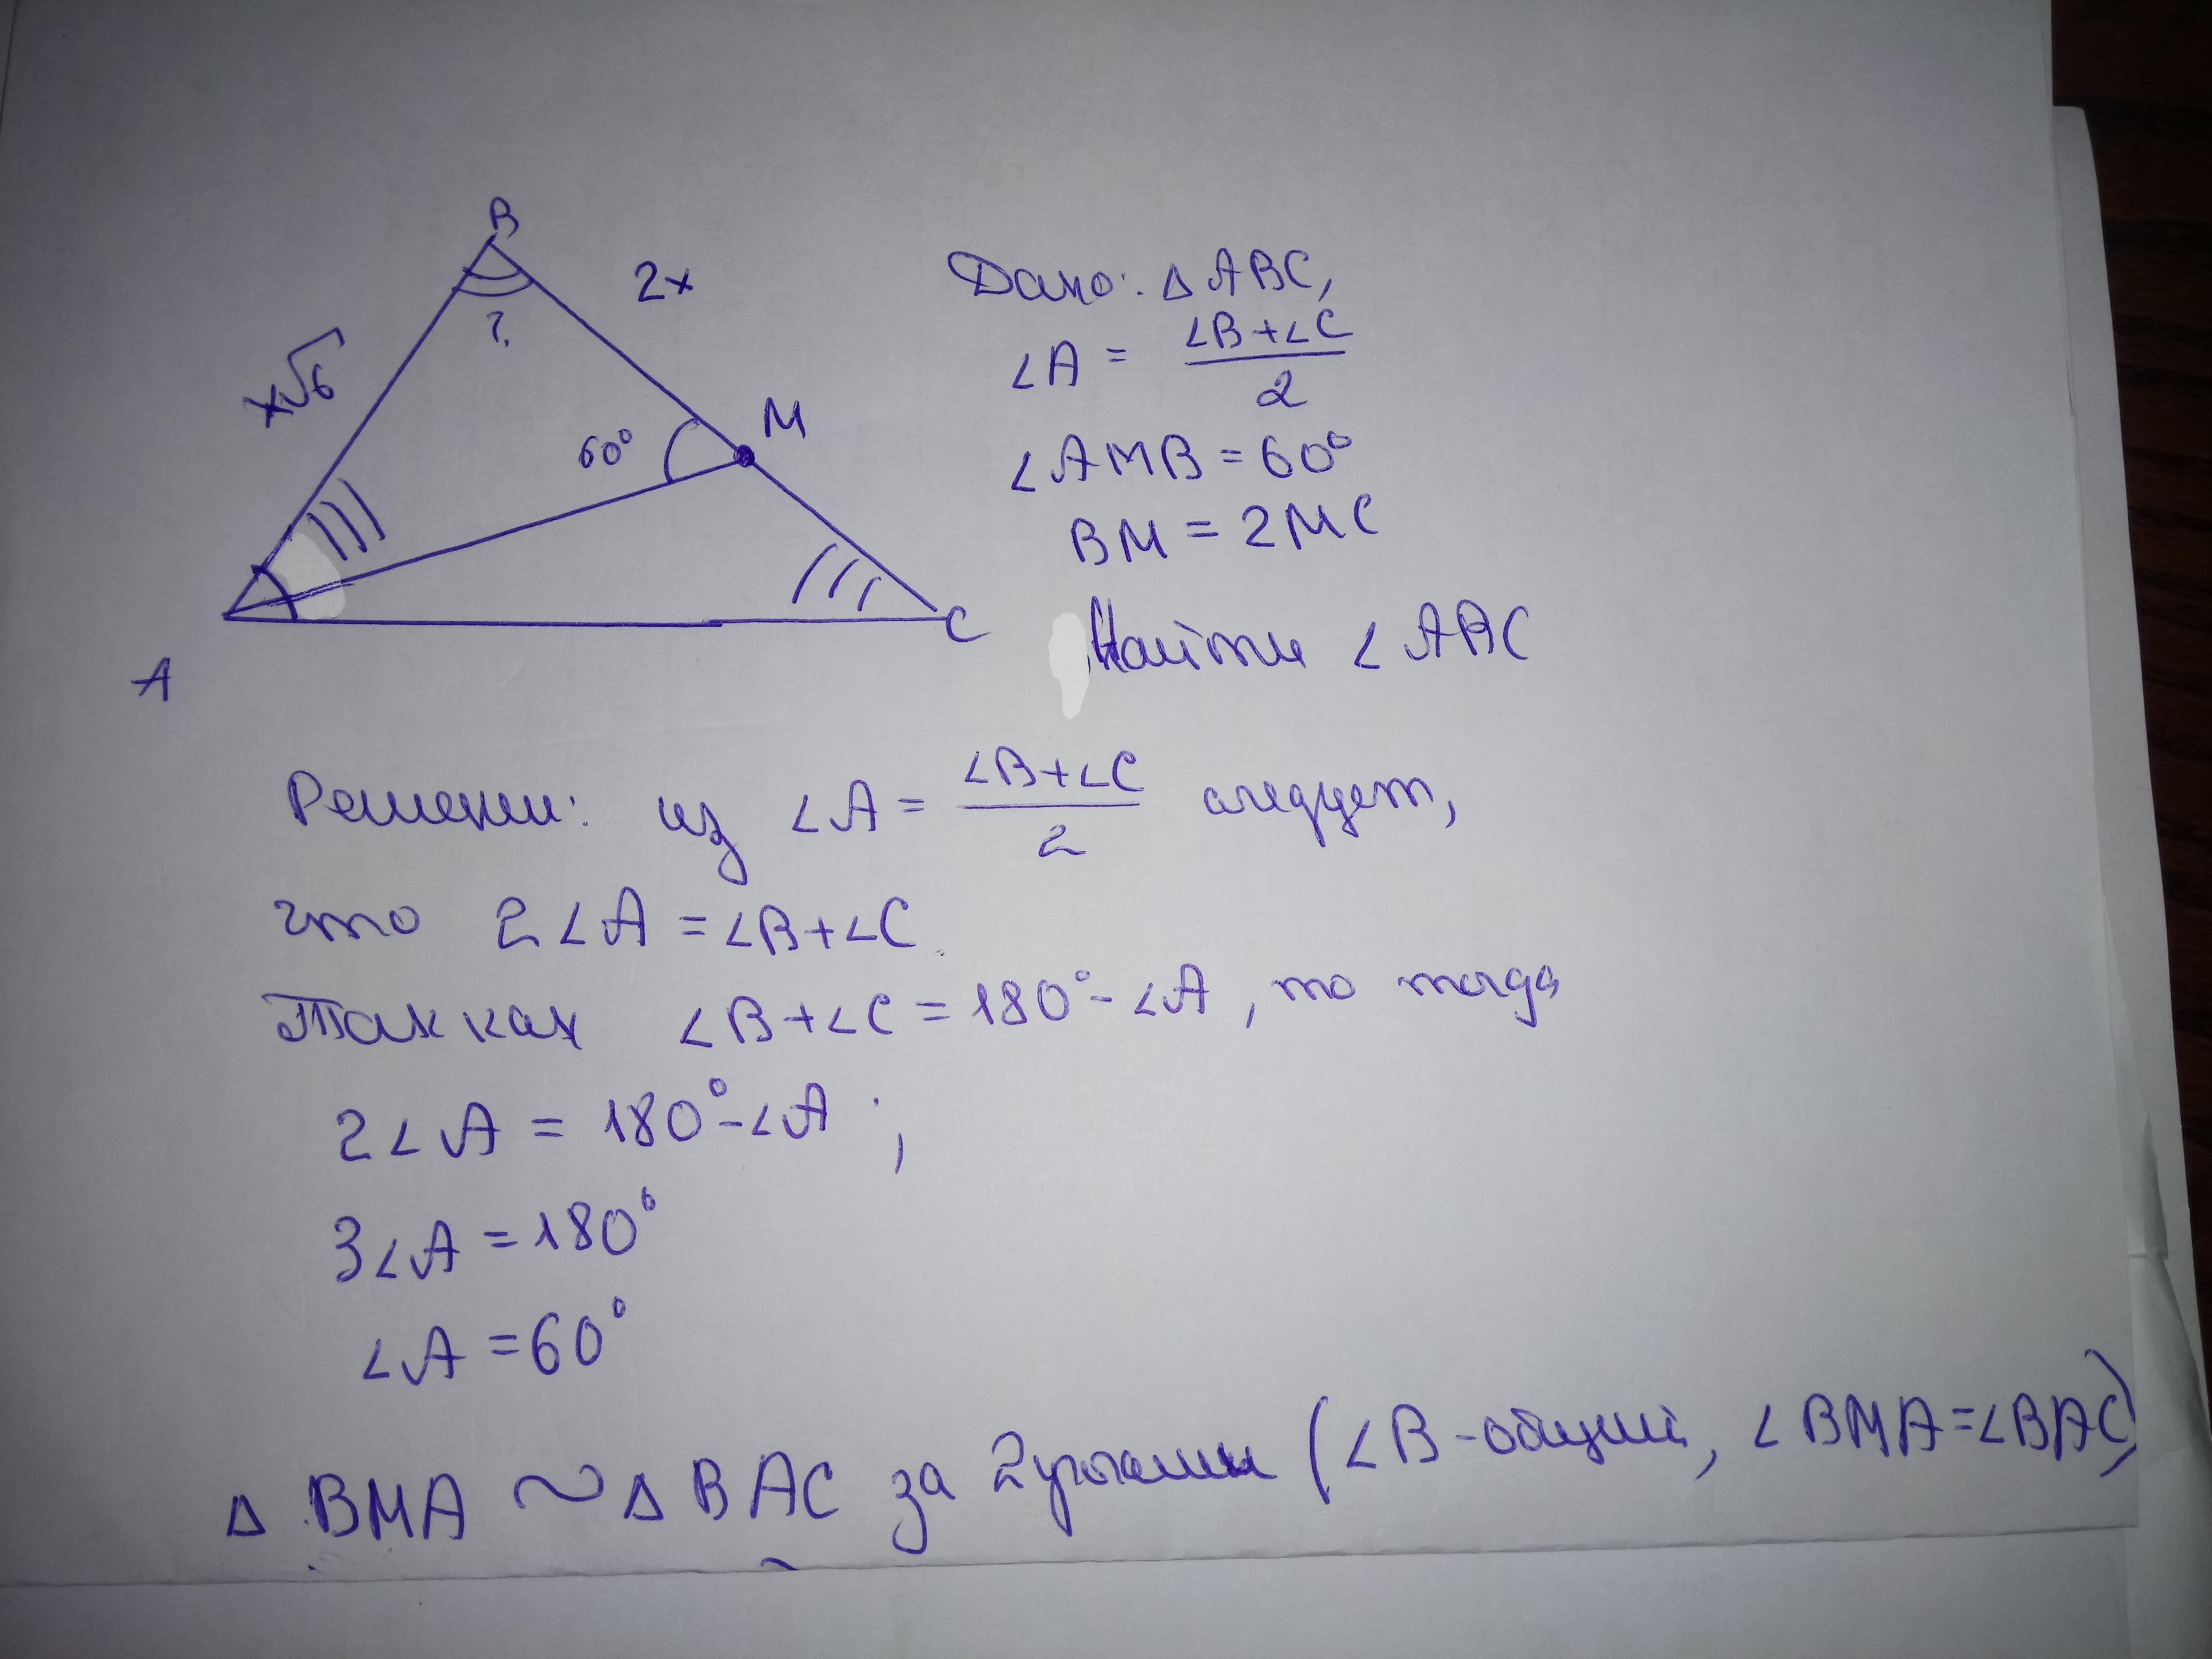 B
2x
x√6
?
60°
M
A
C
Дано: △ABC,
∠A = (∠B+∠C)/2
∠AMB = 60°
BM = 2MC
Найти ∠ABC
Решение: из ∠A = (∠B+∠C)/2 следует,
что 2∠A = ∠B+∠C.
Так как ∠B+∠C = 180° - ∠A, то тогда
2∠A = 180° - ∠A ;
3∠A = 180°
∠A = 60°
△ BMA ~ △ BAC за 2 углами (∠B - общий, ∠BMA = ∠BAC)